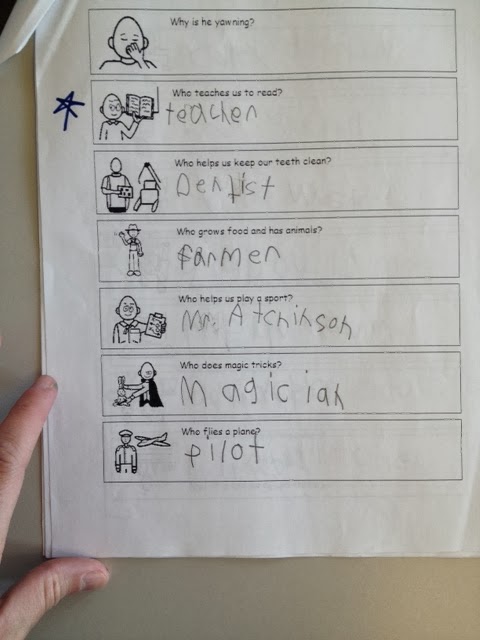 Why is he yawning?
Who teaches us to read?
teacher
Who helps us keep our teeth clean?
Dentist
Who grows food and has animals?
farmer
Who helps us play a sport?
Mr. Atchinson
Who does magic tricks?
Magician
Who flies a plane?
pilot